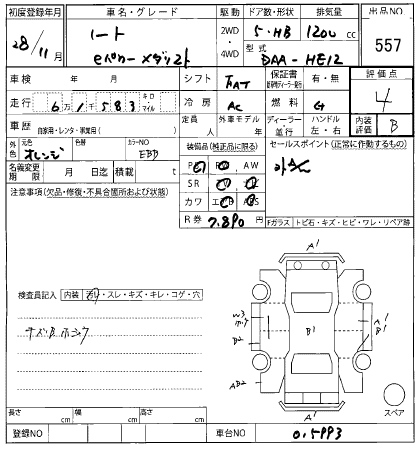 初度登録年月 車名・グレード 駆動 ドア数・形状 排気量 出品NO
28/11月 ノート 2WD 5・HB 1200 cc 557
eパワーメダリスト 4WD 型式 DAA-HE12
車検 年 月 シフト FAT 保証書 有・無 評価点
走行 6万1千583 キロ マイル 冷房 AC 燃料 G 4
車歴 自家用・レンタ・事業用( ) 外車モデル 年 ディーラー・並行 ハンドル 左・右 内装評価 B
外色 元色 オレンジ 色替 カラーNO EBB 装備品(純正品に限る) セールスポイント(正常に作動するもの)
名義変更期限 月 日迄 積載 t PS PW AW
注意事項(欠品・修復・不具合箇所および状態) SR
カワ エアB
R券 7,890円 Fガラス トビ石・キズ・ヒビ・ワレ・リペア跡
A1
検査員記入 内装 汚れ・スレ・キズ・キレ・コゲ・穴
W3 B1 A1 B1
B2
AB2
A1 スペア
長さ cm 幅 cm 高さ cm
登録NO 車台NO 015993